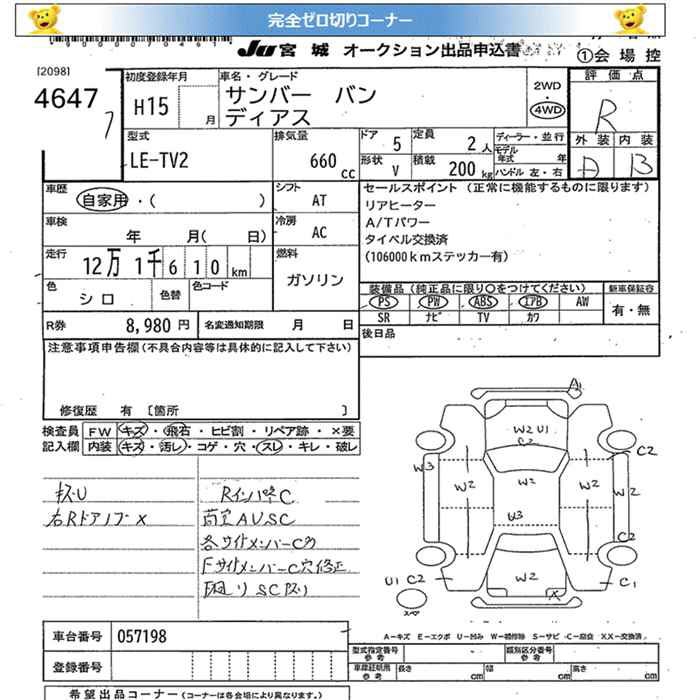 完全ゼロ切りコーナー
JU宮城 オークション出品申込書
①会場控
[2098]
4647
7
初度登録年月 H15 月
車名・グレード サンバー バン
ディアス
2WD
・
4WD
評価点 R
外装 内装
D B
型式 LE-TV2
排気量 660 cc
ドア 5
形状 V
定員 2 人
積載 200 kg
ディーラー・並行
モデル年式 年
ハンドル 左・右
車歴 自家用・( )
シフト AT
車検 年 月( 日)
冷房 AC
走行 12万1千610km
燃料 ガソリン
色 シロ
色替
色コード
R券 8,980円
名変通知期限 月 日
セールスポイント (正常に機能するものに限ります)
リアヒーター
A/Tパワー
タイベル交換済
(106000kmステッカー有)
装備品 (純正品に限り○をつけてください)
新車保証書
PS PW ABS エアB AW
SR ナビ TV カワ
有・無
後日品
注意事項申告欄 (不具合内容等は具体的に記入して下さい)
修復歴 有 〔箇所 〕
検査員記入欄
FW キズ・飛石・ヒビ割・リペア跡・×要
内装 キズ・汚レ・コゲ・穴・スレ・キレ・破レ
キズU
右Rドアノブ×
RインパネC
各サイドメンバーC
FサイドメンバーC穴修正
下廻りSC
A
W2 U1
C2
W3
W2
W2
W2
W2
C2
W3
C2
W2
U1 C2
X
C1
スペア
A-キズ E-エクボ U-凹み W-補修跡 S-サビ C-腐食 XX-交換済
車台番号 057198
登録番号
型式指定番号 参考
類別区分番号 参考
車庫証明用 参考
長さ cm
幅 cm
高さ cm
希望出品コーナー (コーナーは各会場により異なります。)